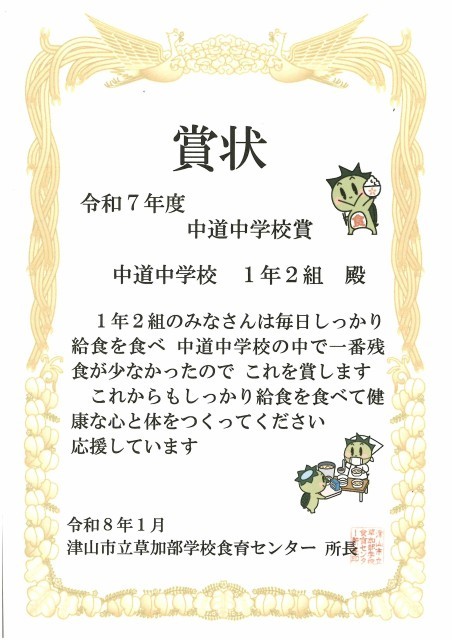 賞状
令和７年度
中道中学校賞
中道中学校　１年２組　殿
１年２組のみなさんは毎日しっかり
給食を食べ 中道中学校の中で一番残
食が少なかったので これを賞します
これからもしっかり給食を食べて健
康な心と体をつくってください
応援しています
令和８年１月
津山市立草加部学校食育センター 所長
食